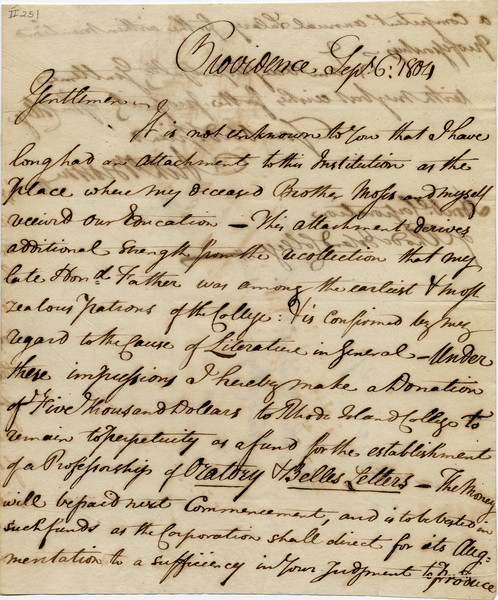 II 251
Providence Sept. 6. 1804
Gentlemen
It is not unknown to You that I have
long had an attachment to this Institution as the
Place where my deceased Brother Moses and myself
receivd our Education – This attachment derives
additional strength from the recollection that my
late Hond. Father was among the earliest & most
zealous Patrons of the College: & is confirmed by my
regard to the Cause of Literature in General – Under
these impressions I hereby make a Donation
of Five Thousand Dollars to Rhode Island College to
remain to perpetuity as a fund for the establishment
of a Professorship of Oratory & Belles Letters – The Money
will be paid next Commencement, and is to be vested in
such funds as the Corporation shall direct for its Aug=
mentation to a sufficiency in Your Judgment to produce